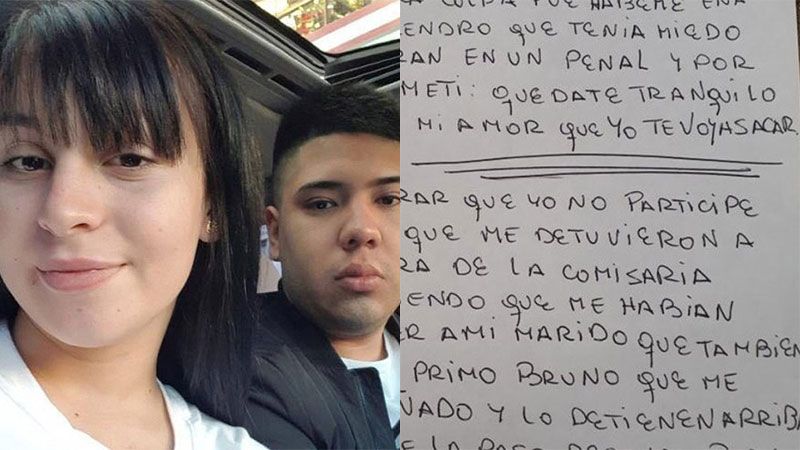 ENDRO QUE TENIA MIEDO
RAN EN UN PENAL Y POR
METI: QUEDATE TRANQUILO
MI AMOR QUE YO TE VOY A SACAR.
RAR QUE YO NO PARTICIPE
QUE ME DETUVIERON A
RA DE LA COMISARIA
ENDO QUE ME HABIAN
R A MI MARIDO QUE TAMBIEN
PRIMO BRUNO QUE ME
ÑADO Y LO DETIENEN ARRIB